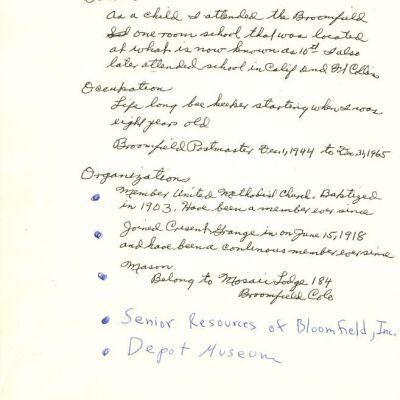 As a child I attended the Broomfield
one room school that was located
at what is now known as 10th I also
later attended school in Calif and Ft Collins
Occupation
Life long bee keeper starting when I was
eight years old
Broomfield Postmaster Dec. 1, 1944 to Dec. 31, 1965
Organizations
Member United Methodist Church. Baptized
in 1903. Have been a member ever since
Joined Cresent Grange in on June 15, 1918
and have been a continous member ever since
Mason
Belong to Mosaic Lodge 184
Broomfield Colo
Senior Resources of Bloomfield, Inc.
Depot Museum